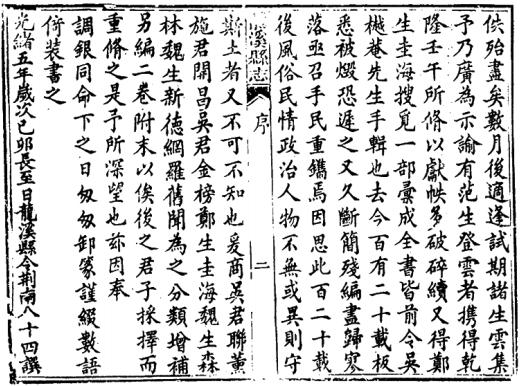 佚殆盡矣數月後適逢試期諸生雲集
予乃廣為示諭有范生登雲者攜得乾
隆壬午所脩以獻帙多破碎續又得鄭
生圭海搜覓一部彙成全書皆前令吳
樾菴先生手輯也去今百有二十載板
悉被燬恐遲之又久斷簡殘編盡歸寥
落亟召手民重鐫焉因思此百二十載
後風俗民情政治人物不無或異則守
溪縣志
序
二
斯土者又不可不知也爰商吳君聯薰
施君開昌吳君金榜鄭生圭海魏生森
林魏生新德網羅舊聞為之分類增補
另編二卷附末以俟後之君子採擇而
重脩之是予所深望也茲因奉
調銀同命下之日匆匆卸篆謹綴數語
倚裝書之
光緒五年歲次己卯長至日龍溪縣令荆南八十四譔